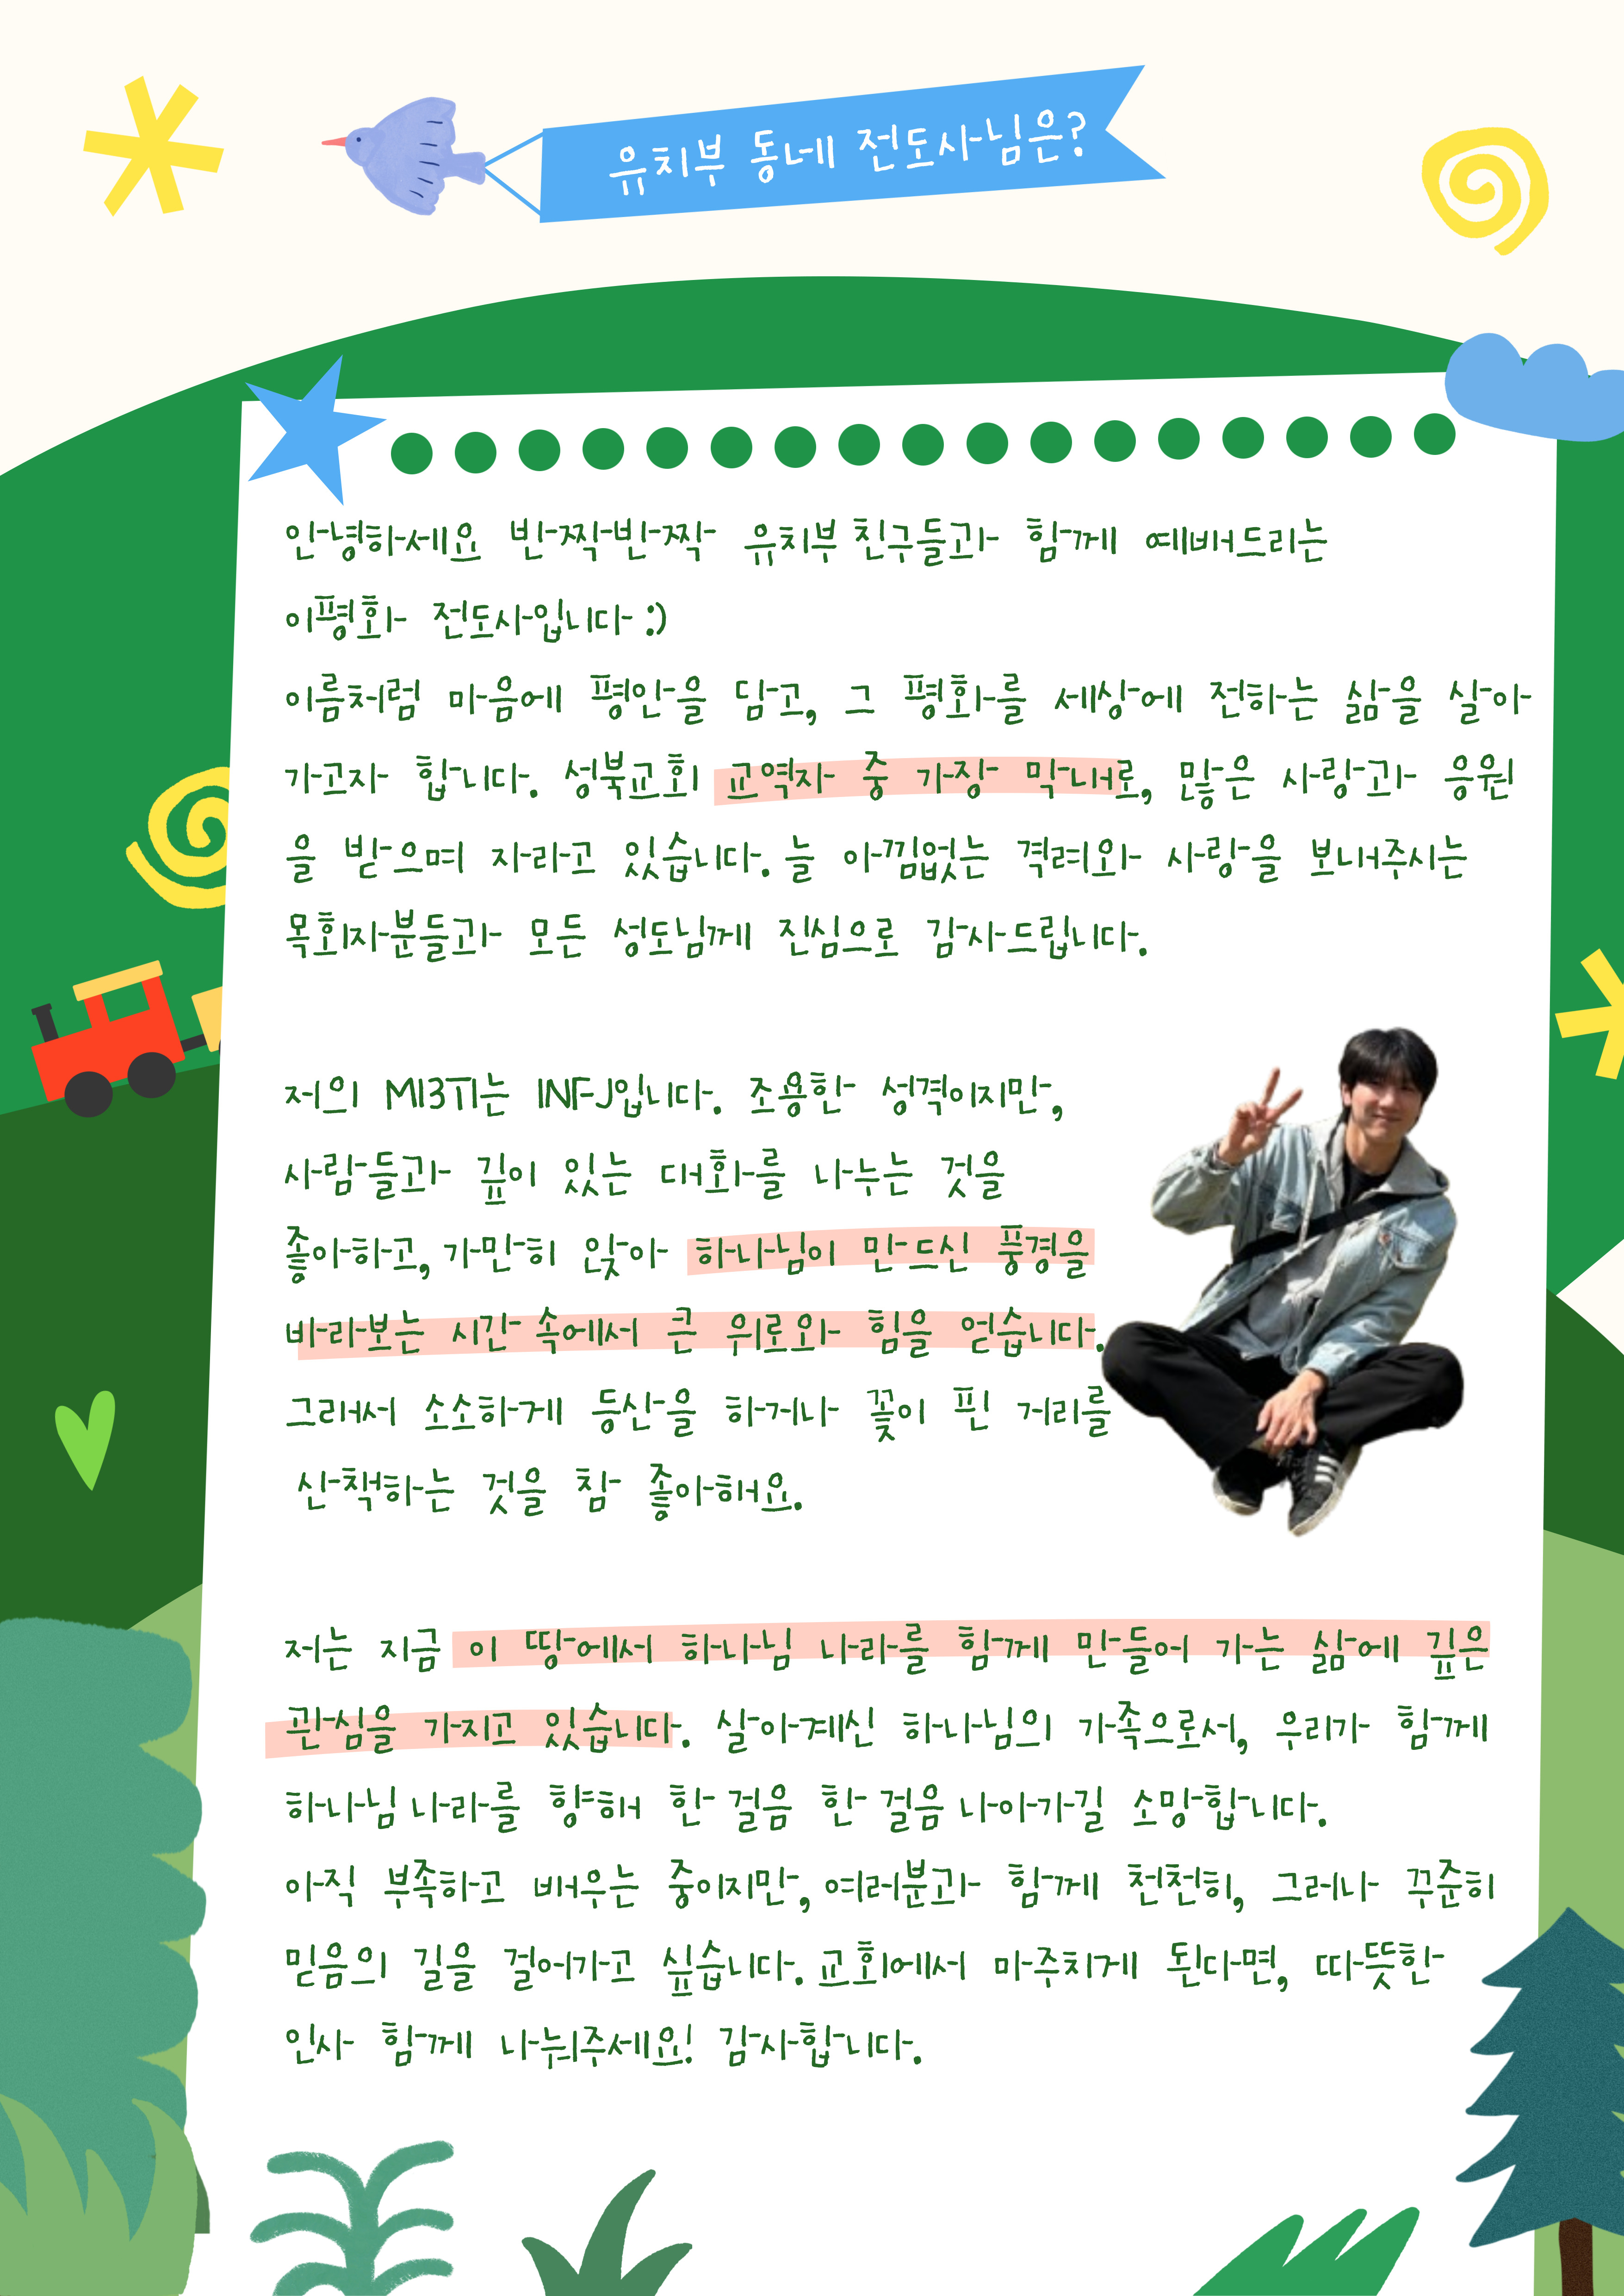 유치부 동네 전도사님은?
안녕하세요 반짝반짝 유치부 친구들과 함께 예배드리는
이평화 전도사입니다 :)
이름처럼 마음에 평안을 담고, 그 평화를 세상에 전하는 삶을 살아
가고자 합니다. 성북교회 교역자 중 가장 막내로, 많은 사랑과 응원
을 받으며 자라고 있습니다. 늘 아낌없는 격려와 사랑을 보내주시는
목회자분들과 모든 성도님께 진심으로 감사드립니다.
저의 MBTI는 INFJ입니다. 조용한 성격이지만,
사람들과 깊이 있는 대화를 나누는 것을
좋아하고, 가만히 앉아 하나님이 만드신 풍경을
바라보는 시간 속에서 큰 위로와 힘을 얻습니다.
그래서 소소하게 등산을 하거나 꽃이 핀 거리를
산책하는 것을 참 좋아해요.
저는 지금 이 땅에서 하나님 나라를 함께 만들어 가는 삶에 깊은
관심을 가지고 있습니다. 살아계신 하나님의 가족으로서, 우리가 함께
하나님 나라를 향해 한 걸음 한 걸음 나아가길 소망합니다.
아직 부족하고 배우는 중이지만, 여러분과 함께 천천히, 그러나 꾸준히
믿음의 길을 걸어가고 싶습니다. 교회에서 마주치게 된다면, 따뜻한
인사 함께 나눠주세요! 감사합니다.